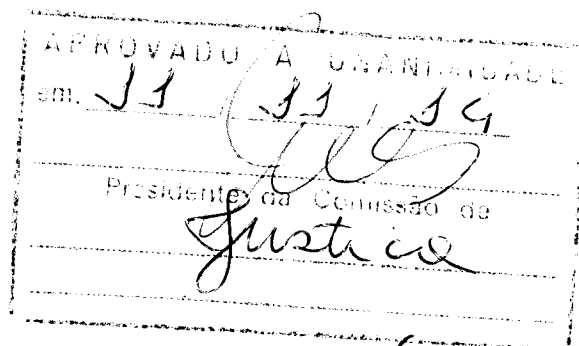 APROVADO À UNANIMIDADE
em. 11 , 11 , 14
Presidente da Comissão de
Justiça